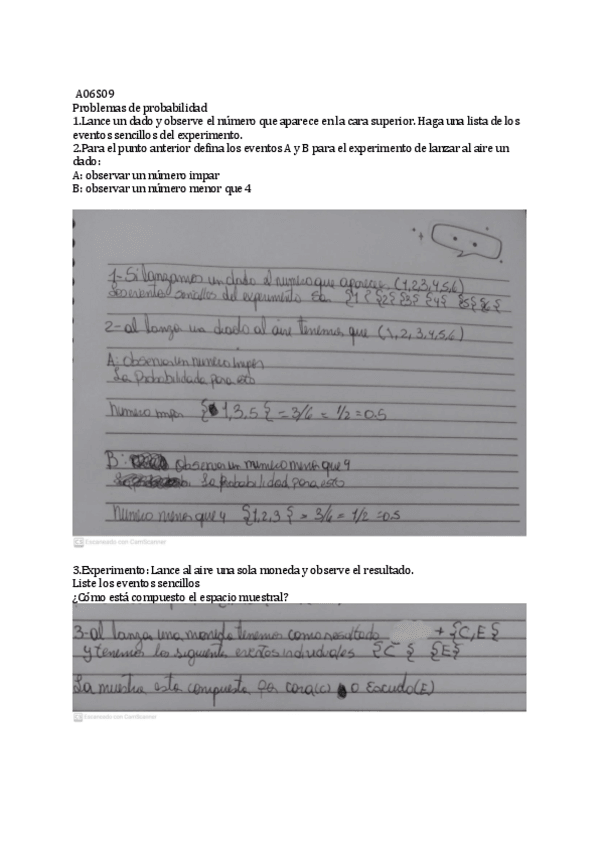 A06S09
Problemas de probabilidad
1.Lance un dado y observe el número que aparece en la cara superior. Haga una lista de los
eventos sencillos del experimento.
2.Para el punto anterior defina los eventos A y B para el experimento de lanzar al aire un
dado:
A: observar un número impar
B: observar un número menor que 4
1-Si lanzamos un dado el numero que aparece (1,2,3,4,5,6)
eventos sencillos del experimento {1{ {2{ {3{ {4{ {5{ {6{
2-al lanza un dado al aire tenemos que (1,2,3,4,5,6)
A: observar un numero impar
La Probabilidad para esto
numero impar { 1,3,5 { = 3/6 = 1/2 = 0.5
B: observar un numero menor que 4
La probabilidad para esto
numero menor que 4 {1,2,3 { = 3/6 = 1/2 = 0.5
CS Escaneado con CamScanner
3.Experimento: Lance al aire una sola moneda y observe el resultado.
Liste los eventos sencillos
¿Cómo está compuesto el espacio muestral?
3-al lanzar una moneda tenemos como resultado + {C,E {
y tenemos los siguiente eventos individuales {C { {E}
La muestra esta compuesta por cara(c) o Escudo(E)
CS Escaneado con CamScanner